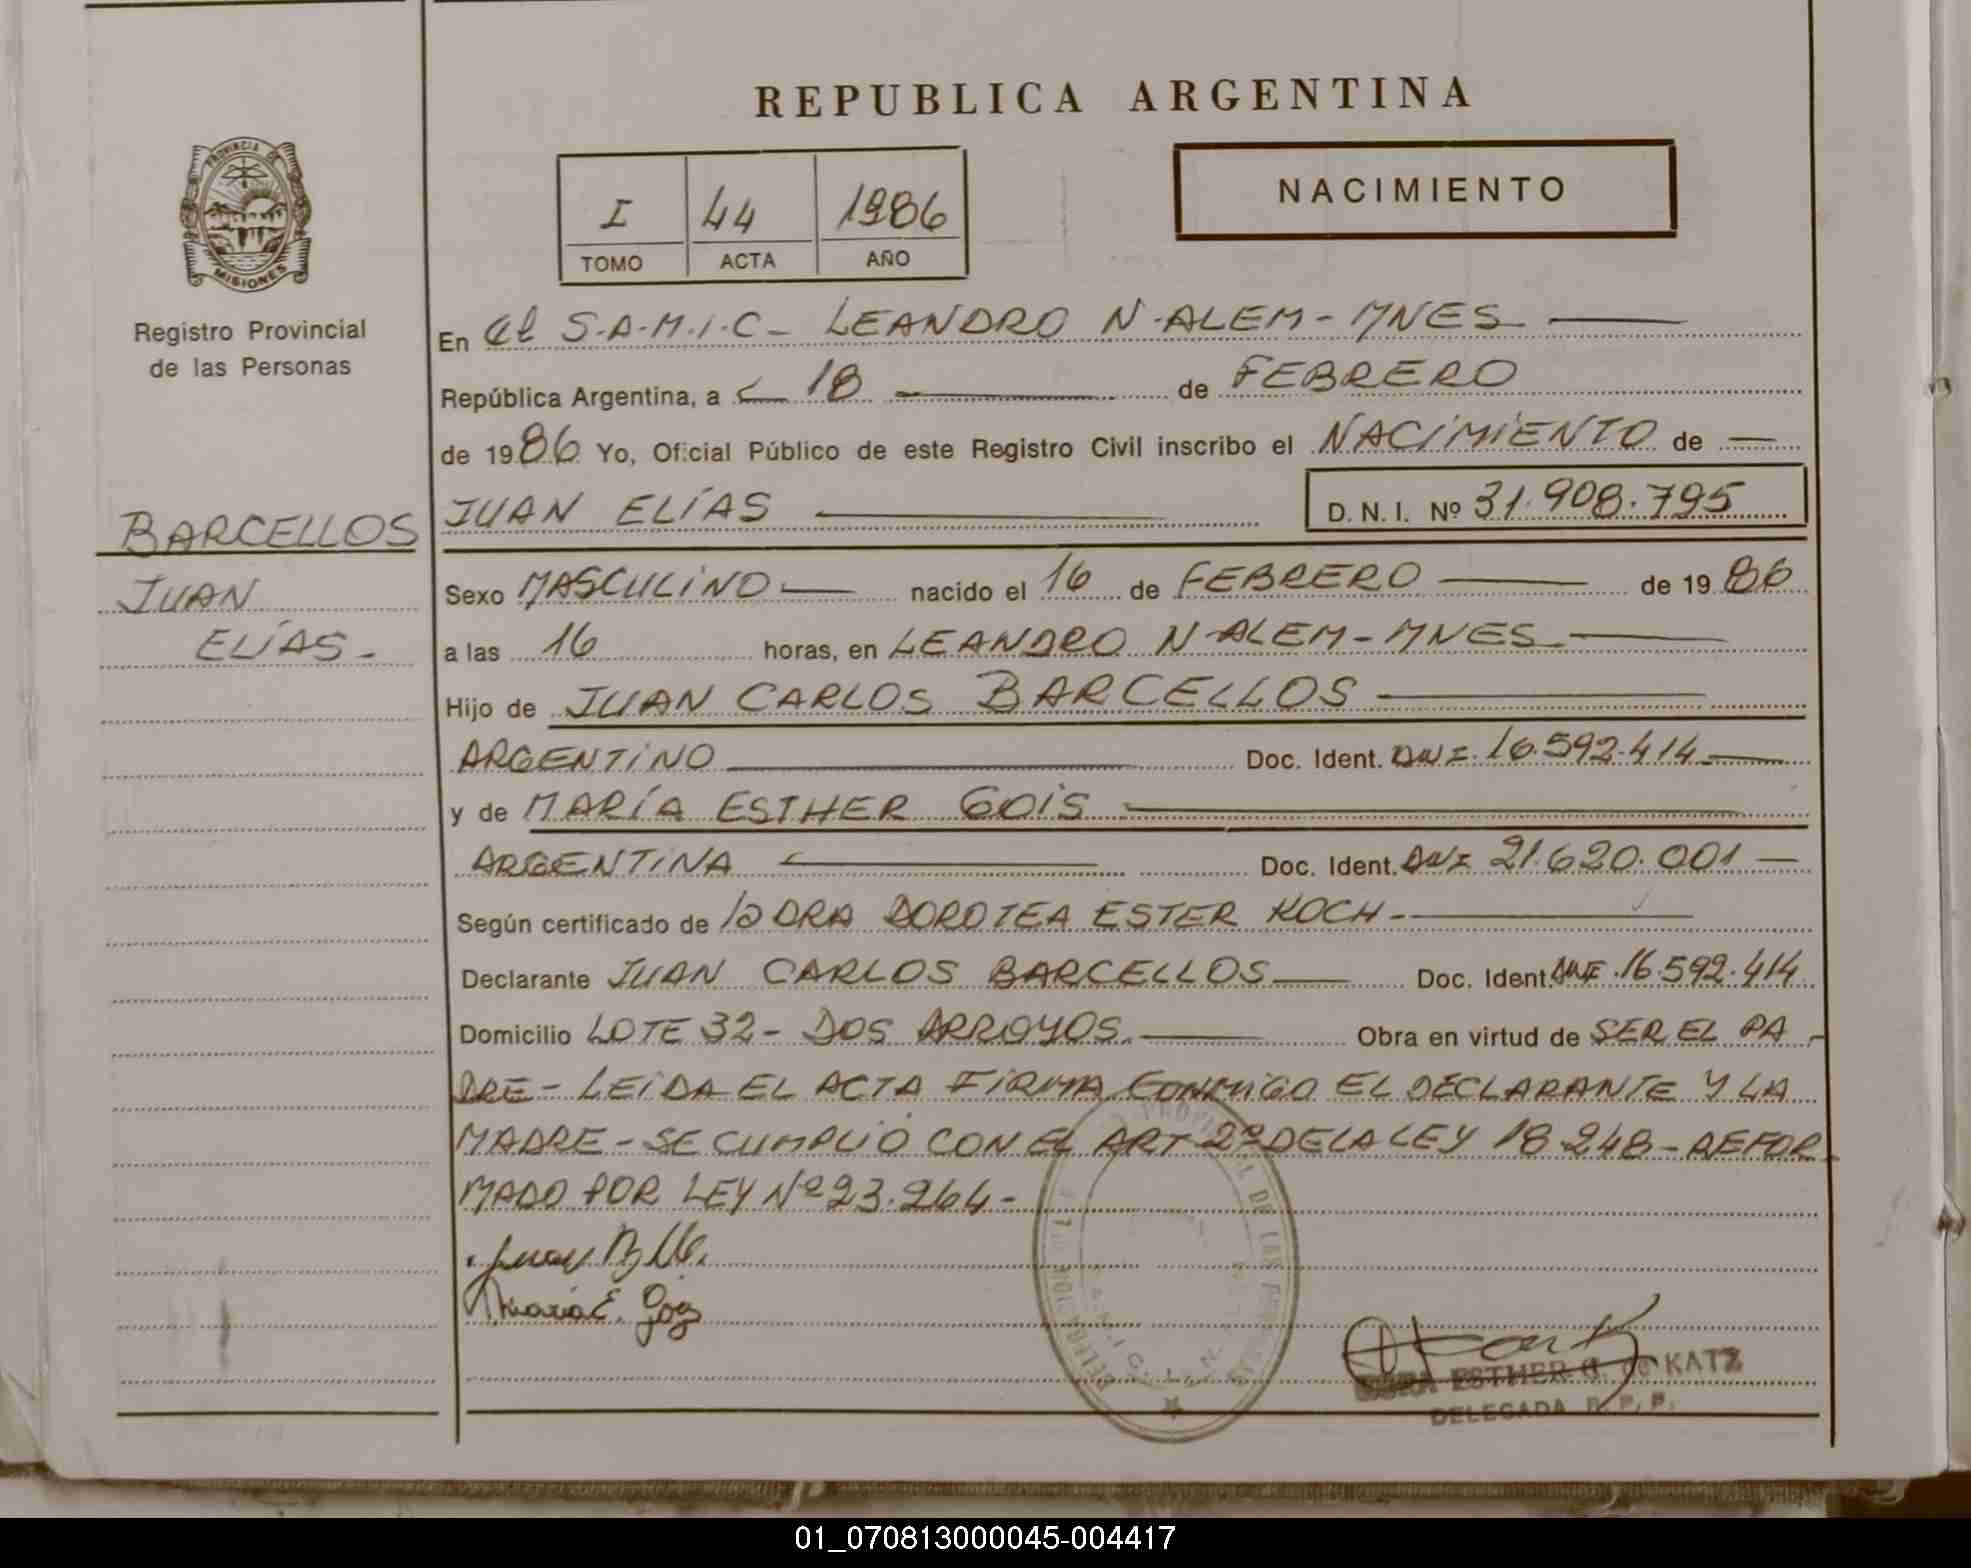 REPUBLICA ARGENTINA
PROVINCIA DE
MISIONES
Registro Provincial
de las Personas
I 44 1986
TOMO ACTA AÑO
NACIMIENTO
En el S.A.M.I.C- LEANDRO N.ALEM-MNES
República Argentina, a 18 de FEBRERO
de 1986 Yo, Oficial Público de este Registro Civil inscribo el NACIMIENTO de
JUAN ELÍAS D.N.I. Nº 31.908.795
BARCELLOS
JUAN
ELÍAS-
Sexo MASCULINO nacido el 16 de FEBRERO de 1986
a las 16 horas, en LEANDRO N-ALEM-MNES
Hijo de JUAN CARLOS BARCELLOS
ARGENTINO Doc. Ident. DNI. 16.592.414
y de MARÍA ESTHER GOIS
ARGENTINA Doc. Ident. DNI 21.620.001
Según certificado de la DRA DOROTEA ESTER KOCH-
Declarante JUAN CARLOS BARCELLOS Doc. Ident. DNI.16.592.414
Domicilio LOTE 32- DOS ARROYOS. Obra en virtud de SER EL PA-
DRE- LEIDA EL ACTA FIRMA CONMIGO EL DECLARANTE Y LA
MADRE-SE CUMPLIÓ CON EL ART 2º DE LA LEY 18.248-REFOR
MADO POR LEY Nº 23.264-
María E. Gois
ESTHER G. de KATZ
DELEGADA R.P.P.
01_070813000045-004417